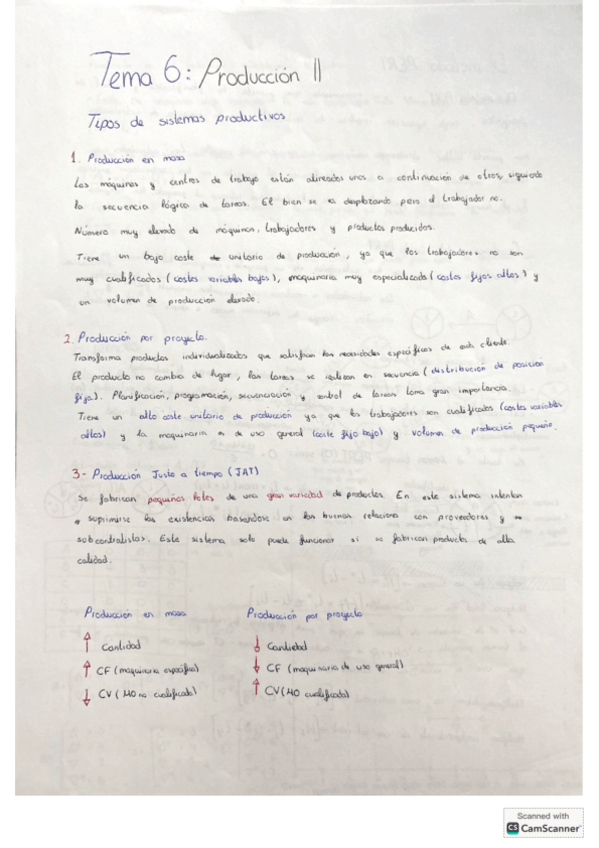 Tema 6: Producción II
Tipos de sistemas productivos
1. Producción en masa
Las máquinas y centros de trabajo están alineados unos a continuación de otros, siguiendo
la secuencia lógica de tareas. El bien se va desplazando pero el trabajador no.
Número muy elevado de máquinas, trabajadores y productos producidos.
Tiene un bajo coste unitario de producción, ya que los trabajadores no son
muy cualificados (costes variables bajos), maquinaria muy especializada (costes fijos altos) y
un volumen de producción elevado.
2. Producción por proyecto.
Transforma productos individualizados que satisfacen las necesidades específicas de cada cliente.
El producto no cambia de lugar, las tareas se realizan en secuencia (distribución de posición
fija). Planificación, programación, secuenciación y control de tareas toma gran importancia.
Tiene un alto coste unitario de producción ya que los trabajadores son cualificados (costes variables
altos) y la maquinaria es de uso general (coste fijo bajo) y volumen de producción pequeño.
3- Producción Justo a tiempo (JAT)
Se fabrican pequeños lotes de una gran variedad de productos. En este sistema intentan
suprimirse las existencias basandose en las buenas relaciones con proveedores y
subcontratistas. Este sistema solo puede funcionar si se fabrican productos de alta
calidad.
Producción en masa Producción por proyecto
↑ Cantidad ↓ Cantidad
↑ CF (maquinaria específica) ↓ CF (maquinaria de uso general)
↓ CV (MO no cualificada) ↑ CV (MO cualificada)
Scanned with
CS CamScanner